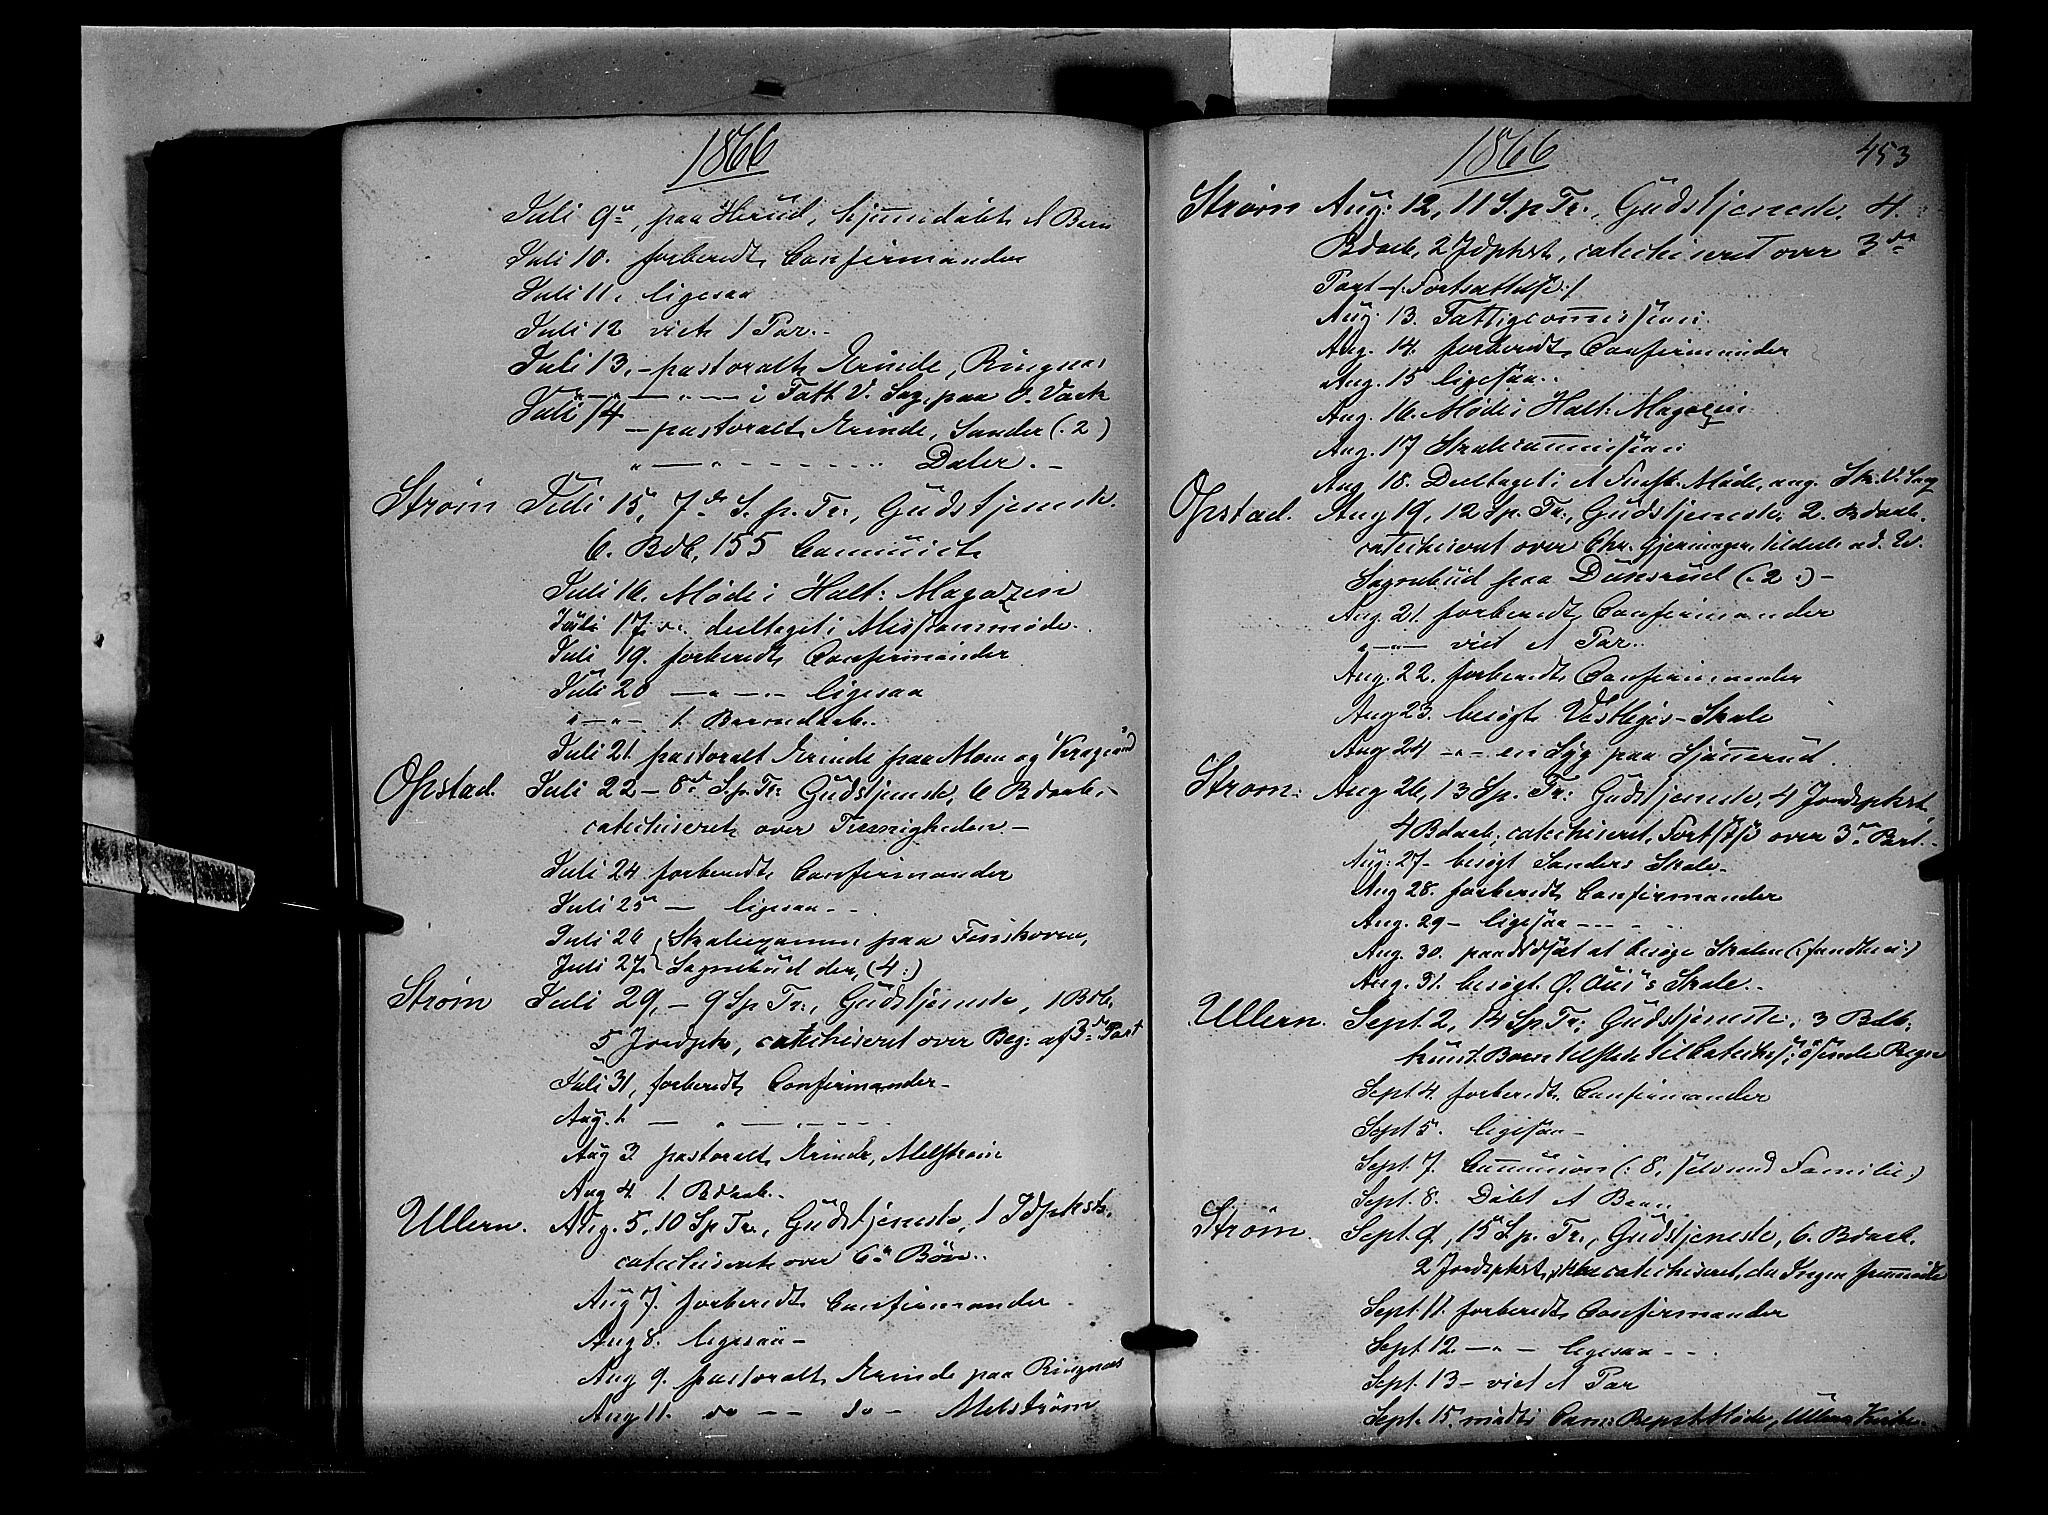 1866
Juli 9de, paa Herud, hjemmedøbt 1 Barn
Juli 10. forberedt Confirmander
Juli 11. ligesaa
Juli 12 viet 1 Par.-
Juli 13.- pastoralt Ærinde, Ringnæs
" — " — i Fatt. V. Sag, paa
Juli 14 - pastoralt Ærinde, Sander (:2)
" — " - - - - - Daler.-
Strøm Juli 15, 7de S. p. Tr., Gudstjeneste.
6. Bdb, 155 Communic.
Juli 16. Møde i Halt: Magazin
Juli 17, deeltaget i Missionsmøde.
Juli 19. forberedt Confirmander
Juli 20 — " — ligesaa
" — " — 1. Barnedaab.
Juli 21. pastoralt Ærinde paa Moen og
Opstad. Juli 22 - 8de S. p. Tr: Gudstjeneste, 6 Bdaab.-
catechiseret over
Juli 24. forberedt Confirmander
Juli 25 — ligesaa - -
Juli 26 Skoleexamen paa Finskoven,
Juli 27. Sognebud der, (4:)
Strøm Juli 29, - 9 S p Tr., Gudstjeneste, 1 Bdb.
5 Jordpk, catechiseret over Beg: af 3de Part
Juli 31, forberedt Confirmander -
Aug. 1. — " — " - - -
Aug 3. pastoralt Ærinde, Melstrøm
Aug 4. 1. Bdaab.-
Ullern. Aug. 5, 10 S p Tr., Gudstjeneste, 1 Jdpkst,
catechiseret over 6te Bøn..
Aug 7. forberedt Confirmander
Aug 8. ligesaa -
Aug 9. pastoralt Ærinde paa Ringnæs
Aug 11. do - - do - Melstrøm
1866 453
Strøm Aug: 12, 11 S. p Tr., Gudstjeneste. 4.
Bdaab, 2 Jdpkst, catechiseret over 3de
Part -/: Fortsættelse:/
Aug. 13. Fattigcommission
Aug. 14. forberedt Confirmander
Aug. 15 ligesaa..
Aug. 16. Møde i Halt: Magazin
Aug. 17 Skolecommission
Aug. 18. Deeltaget i Møde, ang. Sk. V. Sag
Opstad. Aug 19, 12 S p. Tr., Gudstjeneste, 2. Bdaab.
catechiseret over Chr. Gjerninger,
Sognebud paa Dunsrud (:2:)-
Aug. 21. forberedt Confirmander
" — " — viet 1 Par..
Aug. 22. forberedt Confirmander
Aug 23. besøgt Skole
Aug 24 - " - en Syg paa
Strøm: Aug 26, 13 S p. Tr: Gudstjeneste, 4 Jordpkst,
4 Bdaab, catechiseret, over 3de Part.-
Aug: 27- besøgt Sanders Skole-
Aug 28. forberedt Confirmander
Aug. 29 - ligesaa - - - -
Aug. 30. at besøge Skolen
Aug. 31. besøgt Skole.-
Ullern. Sept. 2, 14 S p Tr; Gudstjeneste; 3 Bdb:
kun 1 Barn tilstede til
Sept. 4. forberedt Confirmander
Sept 5. ligesaa -
Sept. 7. Communion (: 8, selv med Familie:)
Sept. 8. Døbt 1 Barn
Strøm. Sept. 9, 15 S. p. Tr., Gudstjeneste, 6. Bdaab.
2 Jordpkst, ikke catechiseret, da Ingen fremmødte
Sept. 11. forberedt Confirmander
Sept. 12 - " - ligesaa - - .
Sept. 13 - viet 1 Par
Sept. 15. Møde, Ullern Kirke.